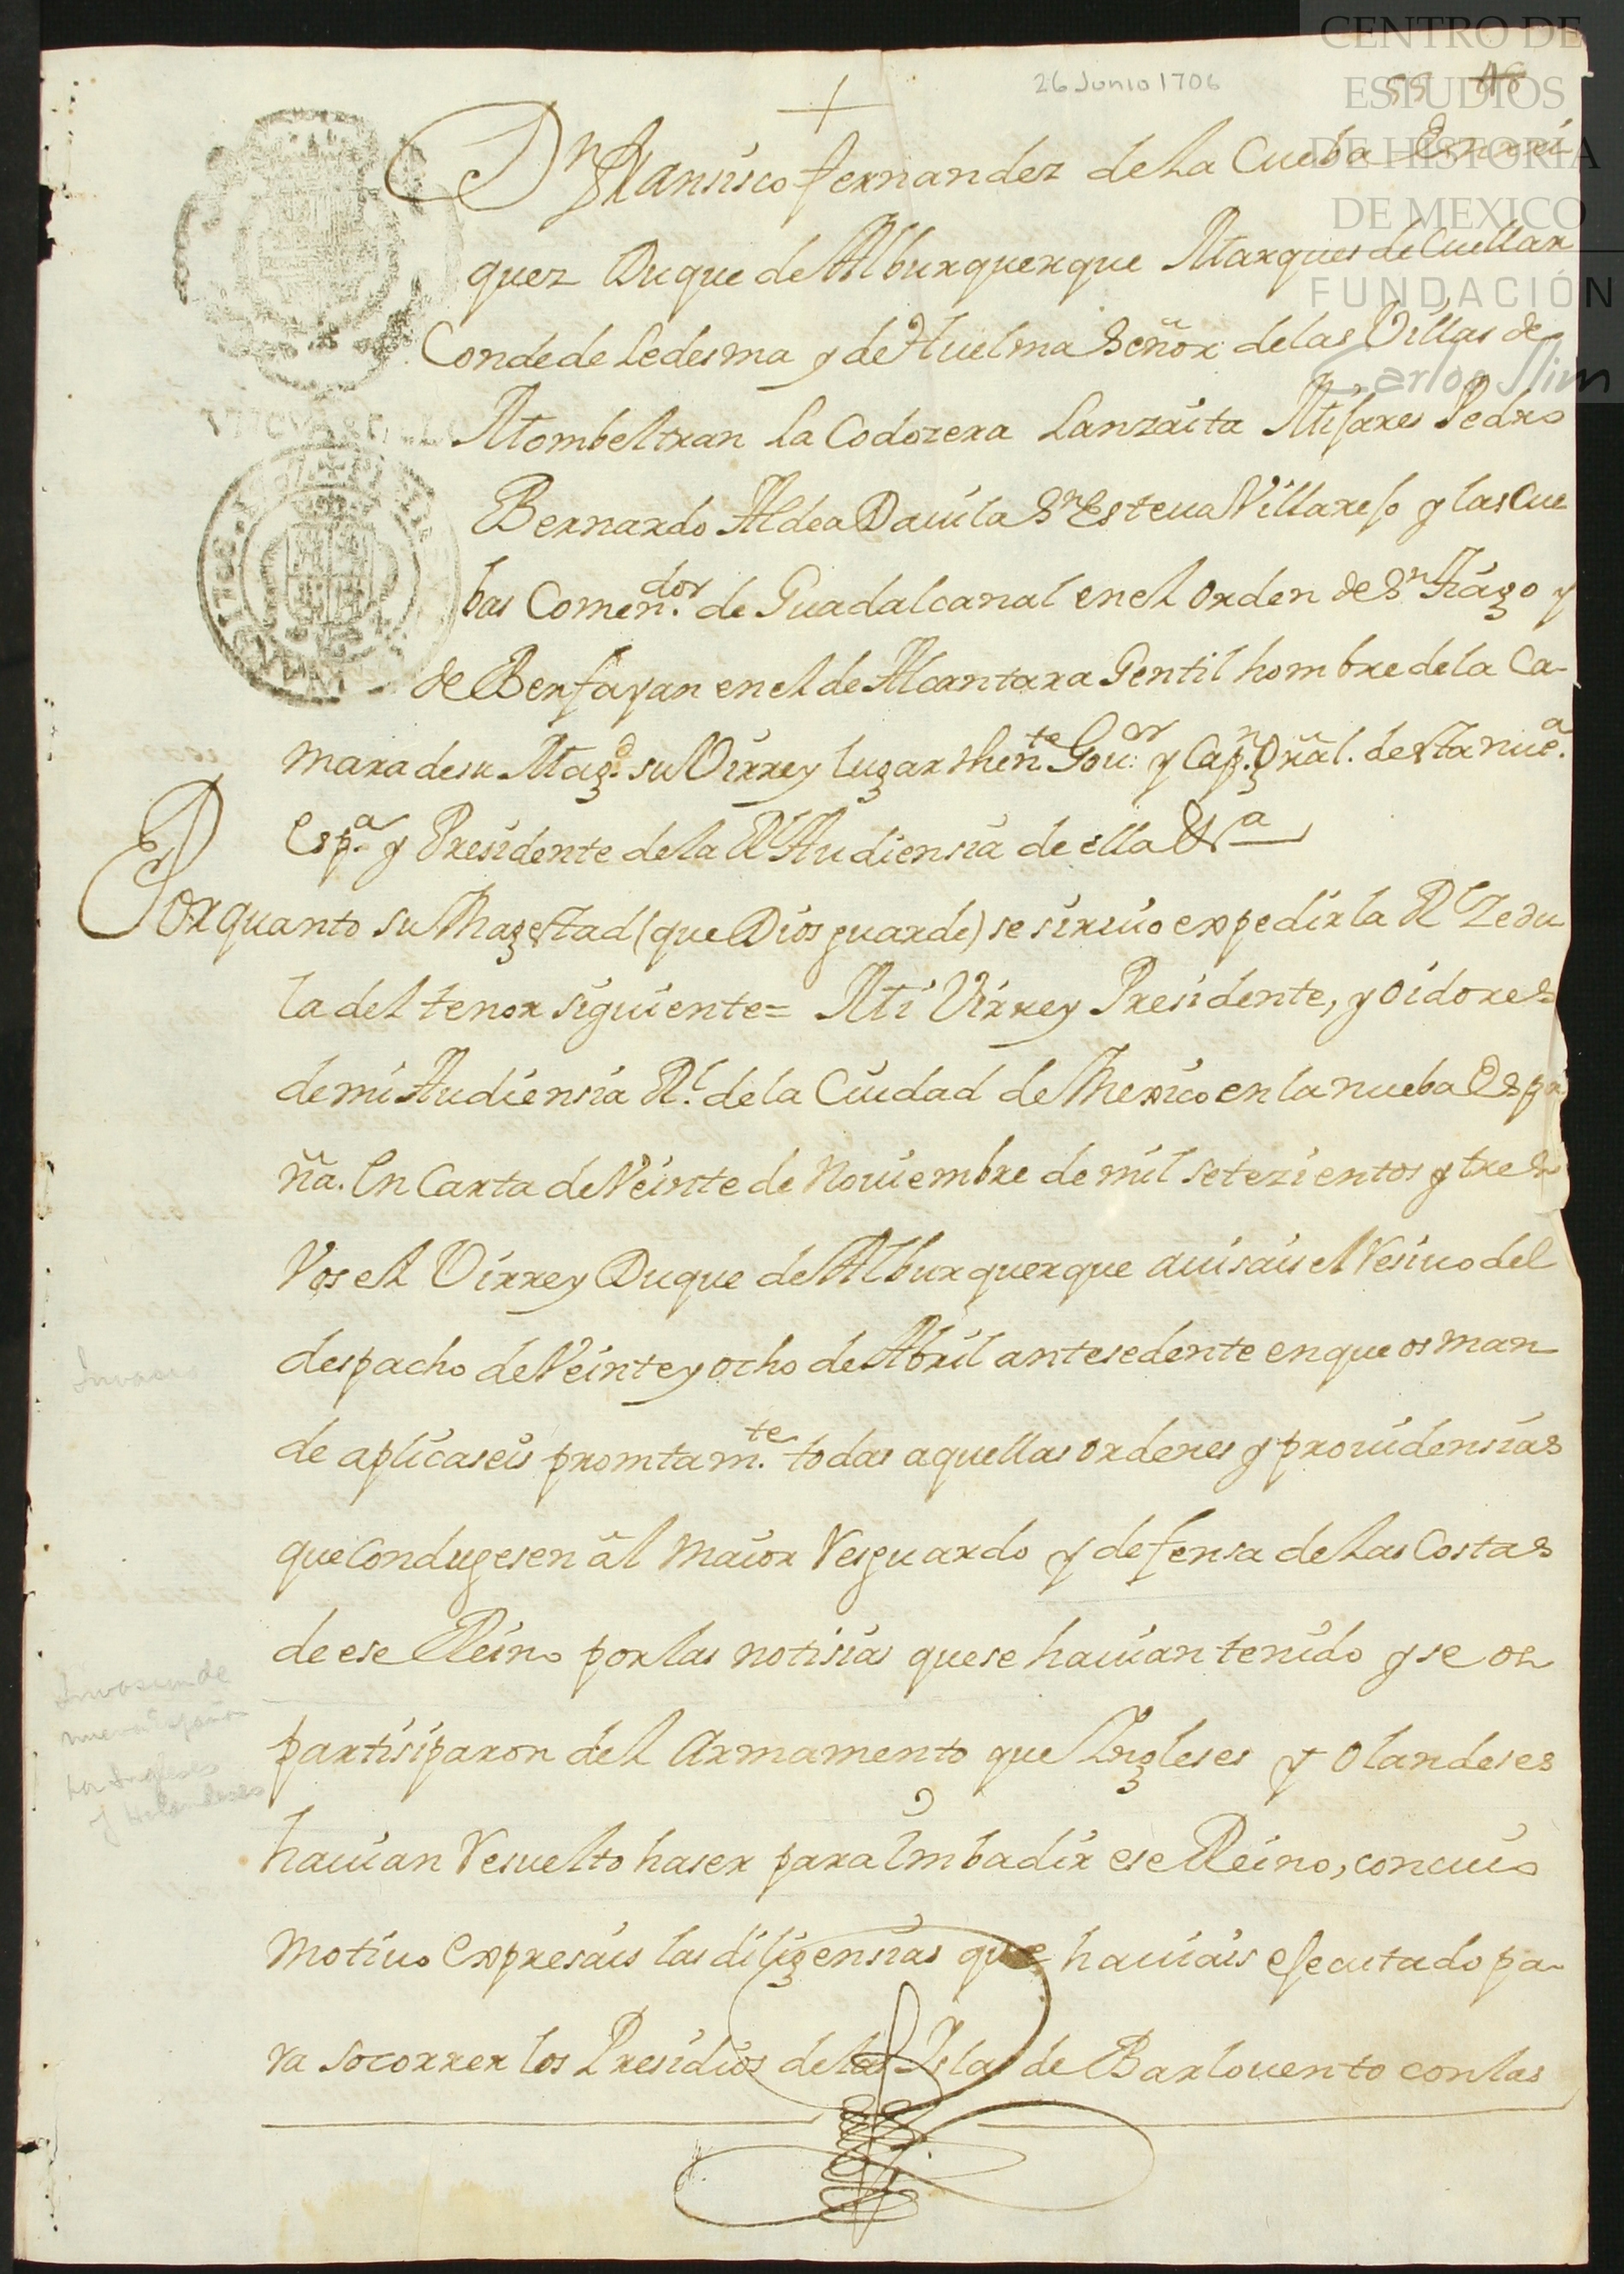 CENTRO DE
ESTUDIOS
DE HISTORIA
DE MEXICO
FUNDACIÓN
Carlos Slim
26 Junio 1706
55 48
Dn Fransisco fernandez de La Cueba Enrri
quez Duque de Alburquerque Marques de Cuellar
Conde de Ledesma y de Huelma Señor de las Villas de
Mombeltran La Codozera Lanzaita Mijares Pedro
Bernardo Aldea Dauila Sn Esteua Villarejo y las Cue
bas Comendor. de Guadalcanal en el orden de Sn Tiago y
de Benfayan en el de Alcantara Gentil hombre de la Ca-
mara de su Magd. su Virrey lugar thente. Gouor. y Capn. Gral. de esta nuea.
Espa. y Presidente de la Rl Audiensia de ella &a
Por quanto su Magestad (que Dios guarde) se siruio expedir la Rl Zedu
la del tenor siguiente= Mi Virrey Presidente, y oidores
de mi Audiensia Rl. de la Ciudad de Mexico en la nueba Espa
ña. En Carta de Veinte de Nouiembre de mil setezientos y tres
Vos el Virrey Duque de Alburquerque auisais el Resiuo del
despacho de Veinte y ocho de Abril antesedente en que os man
de aplicaseis promtamte. todas aquellas ordenes y prouidensias
que Condugesen al maior Resguardo y defensa de Las Costas
de ese Reino por las notisias que se hauian tenido y se os
partisiparon del Armamento que Ingleses y olandeses
hauian Resuelto haser para Imbadir ese Reino, con cuio
motiuo Expresais las diligensias que hauiais ejecutado pa-
ra socorrer los Presidios de las Islas de Barlouento con las
Invasion de
nueva españa
por Ingleses
y Holandeses